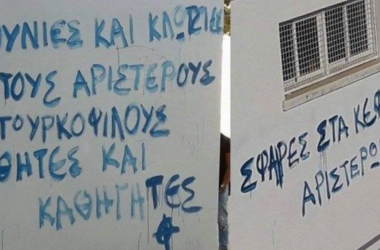 ΟΥΝΙΕΣ ΚΑΙ ΚΛΩΤΣΙΕΣ
ΤΟΥΣ ΑΡΙΣΤΕΡΟΥΣ
ΤΟΥΡΚΟΦΙΛΟΥΣ
ΘΗΤΕΣ ΚΑΙ
ΚΑΘΗΓΗΤΕΣ
ΣΦΑΙΡΕΣ ΣΤΑ ΚΕΦ
ΑΡΙΣΤΕΡΩ